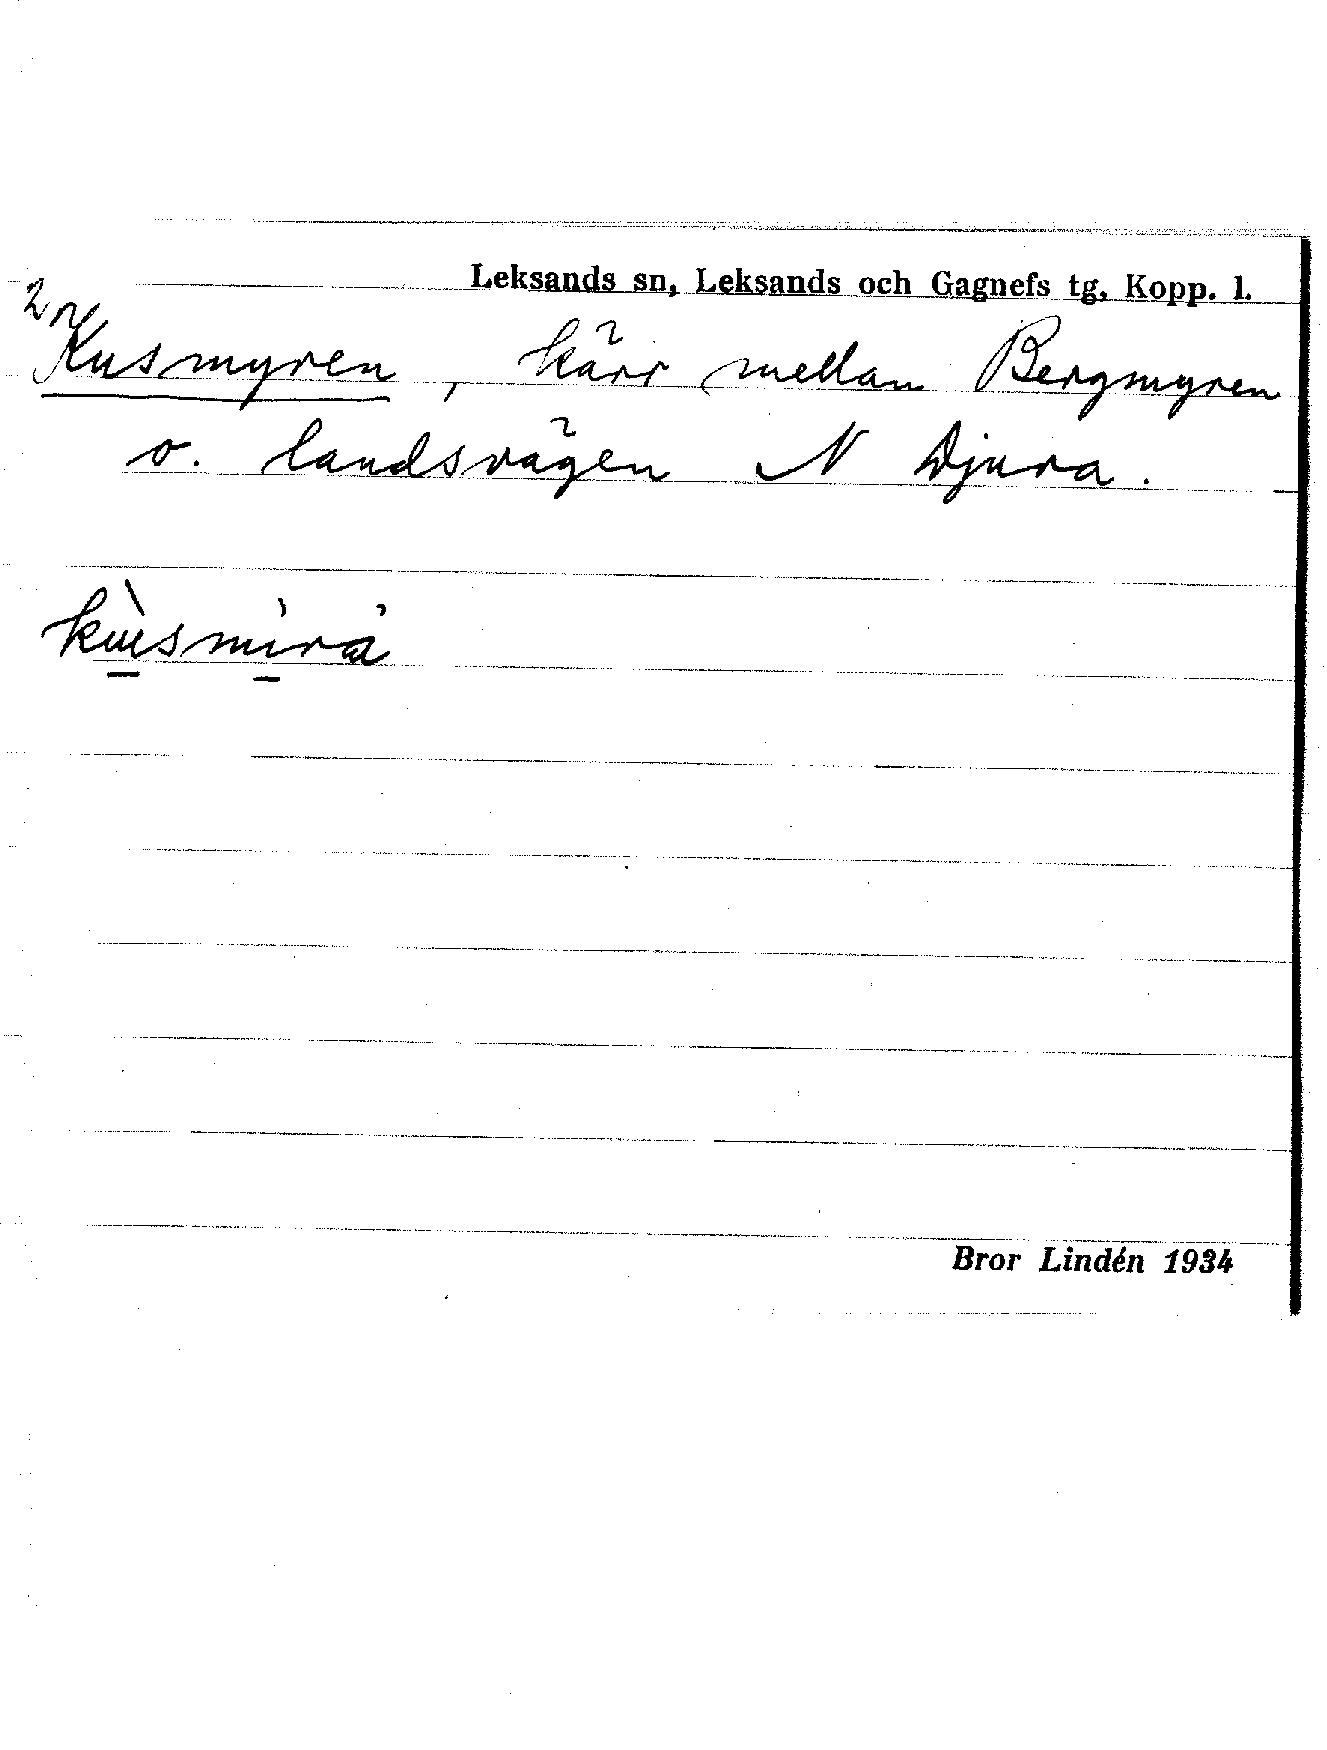 Leksands sn, Leksands och Gagnefs tg, Kopp. l.
Kusmyren, kärr mellan Bergmyren
o. landsvägen N Djura.
Bror Lindén 1934